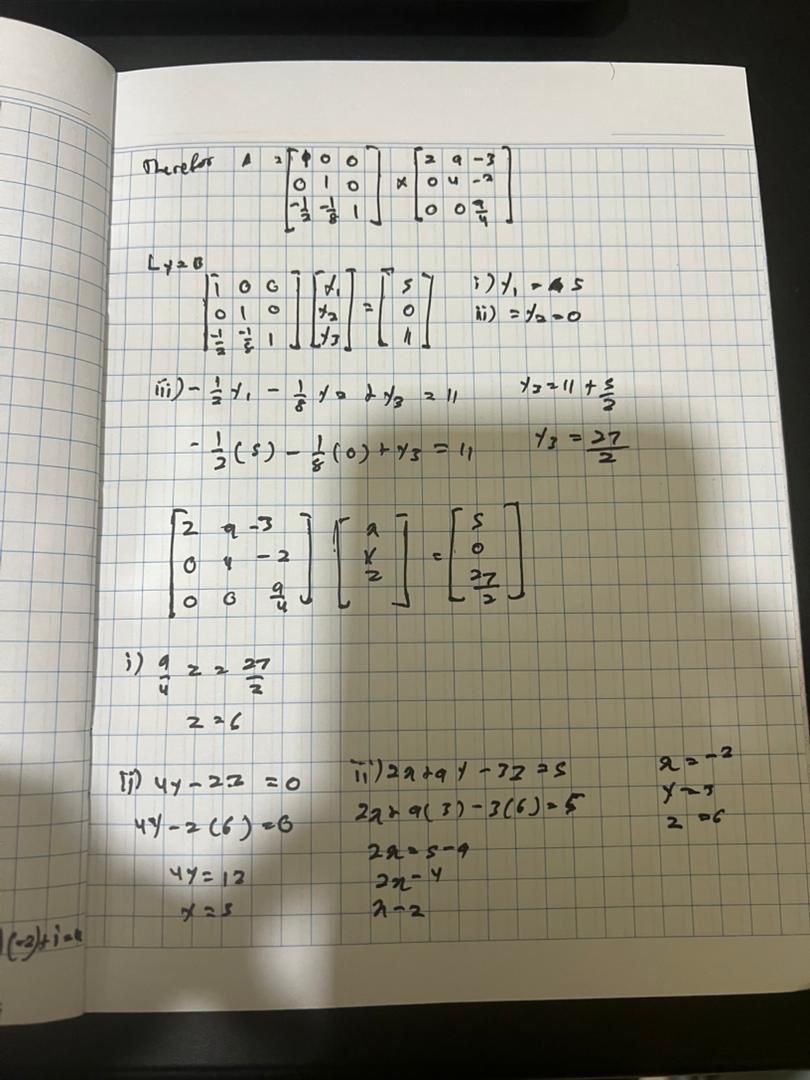 Therefor A = [1 0 0; 0 1 0; -1/2 -1/8 1] x [2 9 -3; 0 4 -2; 0 0 9/4]
Ly=B
[1 0 0; 0 1 0; -1/2 -1/8 1] [y1; y2; y3] = [5; 0; 11]
i) y1 = 5
ii) = y2 = 0
iii) - 1/2 y1 - 1/8 y2 + y3 = 11
y3 = 11 + 5/2
- 1/2 (5) - 1/8 (0) + y3 = 11
y3 = 27/2
[2 9 -3; 0 4 -2; 0 0 9/4] [x; y; z] = [5; 0; 27/2]
i) 9/4 z = 27/2
z = 6
ii) 4y - 2z = 0
4y - 2(6) = 0
4y = 12
y = 3
iii) 2x + 9y - 3z = 5
2x + 9(3) - 3(6) = 5
2x = 5 - 9
2x - 4
x - 2
x = -2
y = 3
z = 6